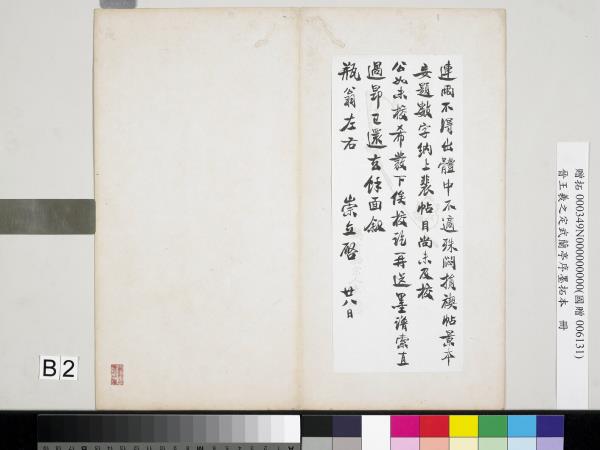 連雨不得出體中不適殊悶損禊帖景本
妄題數字納上裴帖目尚未及校
公如未校希發下俟校訖再送墨譜索直
過昂已還玄餘面敘
瓶翁左右 崇立啓 廿八日
贈拓 000349N000000000(國贈 006131)
晉王羲之定武蘭亭序墨拓本 冊
B2